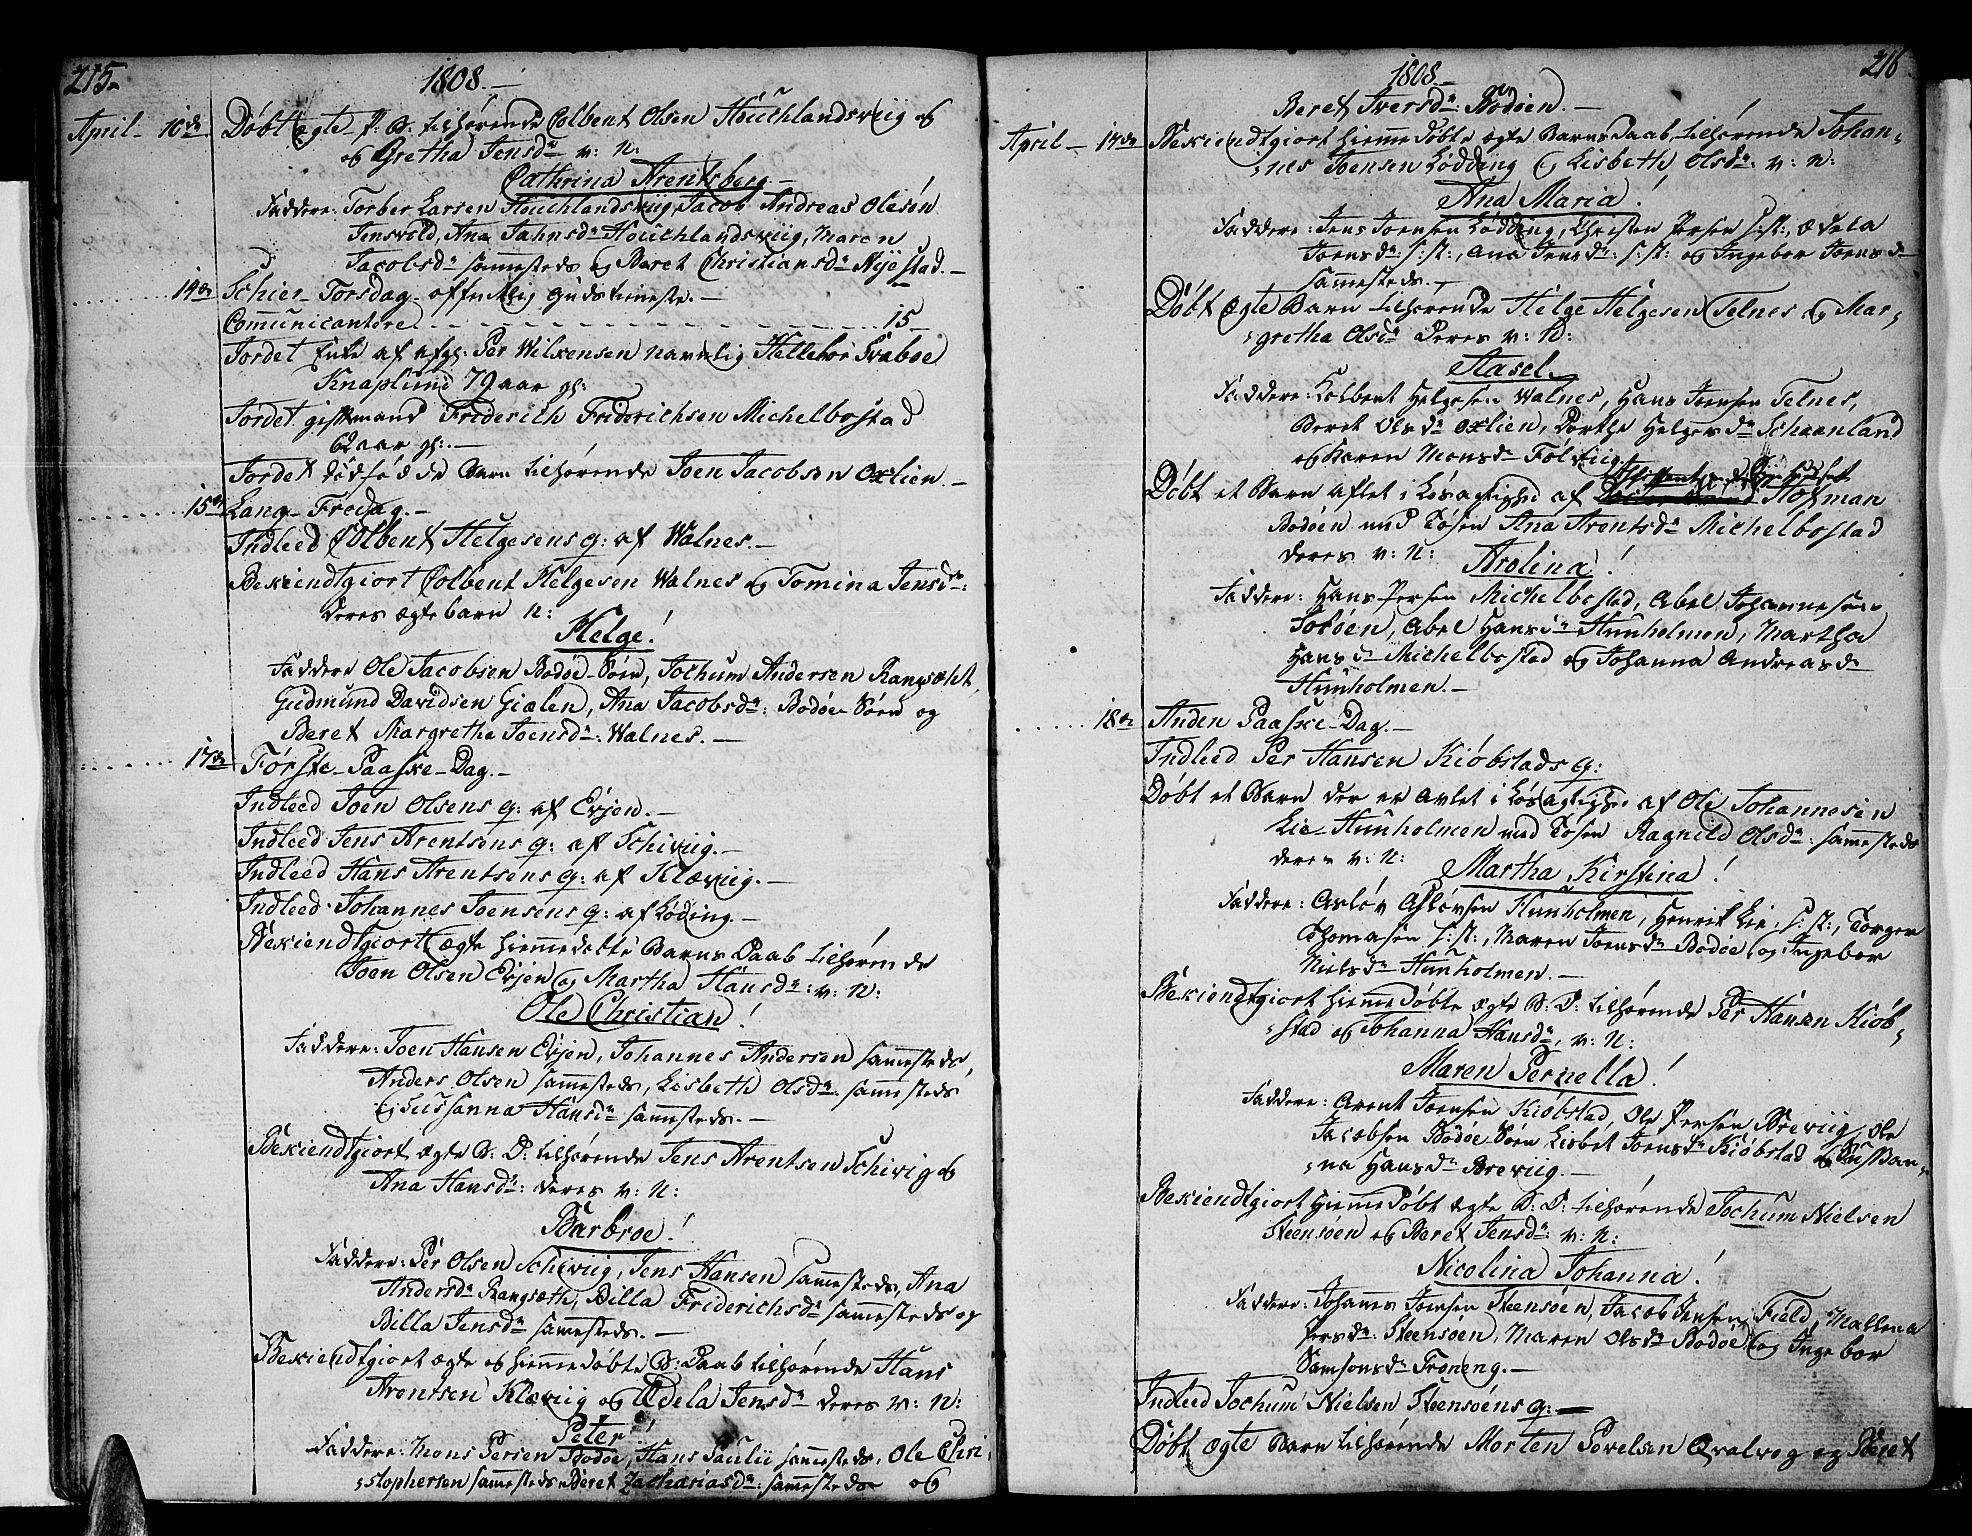 215.
1808.
April 10de Døbt ægte P: B: tilhørende Colbent Olsen Houchlandsviig og
og Gretha Jensd: v: N:
Cathrina Arentsberg.
Faddere: Torber Larsen Houchlandsviig, Jacob Andreas Olesøn
Jensvold, Ana Jahnsd: Houchlandsviig, Maren
Jacobsd: sammesteds og Maret Christiansd: Nyestad.
14de Schier-Torsdag offentlig Gudstieneste.
Communicantere 15
Jordet Enke af afg: Per Wilxensen navnlig Hellebor Svaboe
Knaplund 79 aar gl:
Jordet giftmand Friderich Friderichsen Michelbostad
62 aar gl:
Jordet dødfødde Barn tilhørende Joen Jacobsen Oxlien.
15de Lang-Freidag.
Indleed Colbent Helgesens q: af Walnes.
Bekiendtgiort Colbent Helgesen Walnes og Tomina Jensd:
deres ægte barn N:
Helge!
Faddere Ole Jacobsen Bodøe-Søen, Jochum Andersen Rangsæht,
Gudmund Davidsen Gielen, Ana Jacobsd: Bodøe Søen og
Beret Margretha Joensd: Walnes.
17de Første-Paaske-Dag.
Indleed Joen Olsens q: af Evjen.
Indleed Jens Arentsens q: af Schiviig.
Indleed Hans Arentsens q: af Klæviig.
Indleed Johannes Joensens q: af Løding.
Bekiendtgiort ægte hiemmedøbte Barns Daab tilhørende
Joen Olsen Evjen og Martha Hansd: v: N:
Ole Christian!
Faddere: Joen Hansen Evjen, Johannes Andersen sammesteds,
Anders Olsen sammesteds, Lisbeth Olsd: sammesteds
og Sussanna Hansd: sammesteds.
Bekiendtgiort ægte B: D: tilhørende Jens Arentsen Schivig og
Ana Hansd: deres v: N:
Barbroe!
Faddere: Per Olsen Schiviig, Jens Hansen sammesteds, Ana
Andersd: Rangsæth, Billa Friderichsd: sammesteds og
Billa Jensd: sammesteds.
Bekiendtgiort ægte og hiemmedøbte B: Daab tilhørende Hans
Arentsen Klæviig og Adela Jensd: deres v: N:
Peter!
Faddere: Mons Persen Bodøe, Hans Paulii sammesteds, Ole Chri-
stophersen sammesteds Beret Zachariasd: sammesteds og
216
1808
Beret Iversd: Bodøen.
April 14de Bekiendtgiort hiemmedøbte ægte Barns Daab tilhørende Johan-
nes Joensen Lødding og Lisbeth Olsd: v: N:
Ana Maria!
Faddere: Jens Joensen Lødding, Christen Persen s: st:, Adela
Joensd: s: st:, Ana Jensd: s: st: og Ingebor Joensd:
sammesteds.
Døbt ægte Barn tilhørende Helge Helgesen Telnes og Mar-
gretha Olsd: Deres v: N:
Aasel.
Faddere: Colbent Helgesen Walnes, Hans Joensen Telnes,
Beret Olsd: Oxlien, Dorthe Helgesd: Schaanland
og Karen Monsd: Følviig.
Døbt et Barn aflet i Løsagtighed af Hofman
Bodøen med Tøsen Ana Arentsd: Michelbostad
deres v: N: Arolina!
Faddere: Hans Persen Michelbostad, Abel Johannesen
Soløen, Abel Hansd: Hunholmen, Martha
Hansd: Michelbostad og Johanna Andreasd:
Hunholmen.
18de Anden Paaske-Dag.
Indleed Per Hansen Kiøbstads q:
Døbt et Barn der er Avlet i Løsagtighed af Ole Johannesen
Lie Hunholmen med Tøsen Ragnild Olsd: sammesteds
deres v: N: Martha Kirstina!
Faddere: Asløv Asløvsen Hunholmen, Henrik Lie, s: st:, Torger
Thomasen s: st:, Maren Joensd: Bodøe og Ingebor
Nielsd: Hunholmen.
Bekiendtgiort hiemmedøbte ægte B: D: tilhørende Per Hansen Kiøb-
stad og Johanna Hansd:, v: N:
Maren Pernella!
Faddere: Arent Joensen Kiøbstad, Ole Persen Breviig, Ole
Jacobsen Bodøe Søen Lisbet Joensd: Kiøbstad og Sussan-
na Hansd: Breviig.
Bekiendtgiort hiemmedøbt ægte B: D: tilhørende Jochum Nielsen
Steensøen og Beret Jensd: v: N:
Nicolina Johanna!
Faddere: Johannes Joensen Steensøen, Jacob Jensen Field, Mallena
Persd: Steensøen, Maren Olsd: Bodøe og Ingebor
Samsonsd: Troneng.
Indleed Jochum Nielsen Steensøens q:
Døbt ægte Barn tilhørende Morten Povelsen Qvalvog og Beret